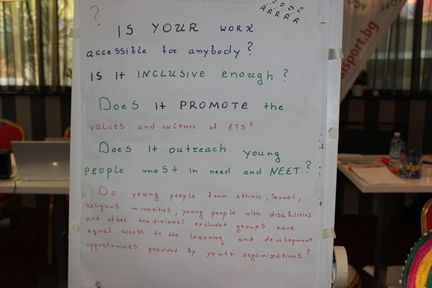 ?
IS YOUR WORK
accessible for anybody?
IS It INCLUSIVE enough?
Does It PROMOTE the
values and culture of ETS?
Does It outreach young
people most in need and NEET?
Do young people from ethnic, sexual,
religious minorities, young people with disabilities
and other tradizional excluдet groups have
equal access to the learning and development
opportunities provided by youth organizations?
sport.bg